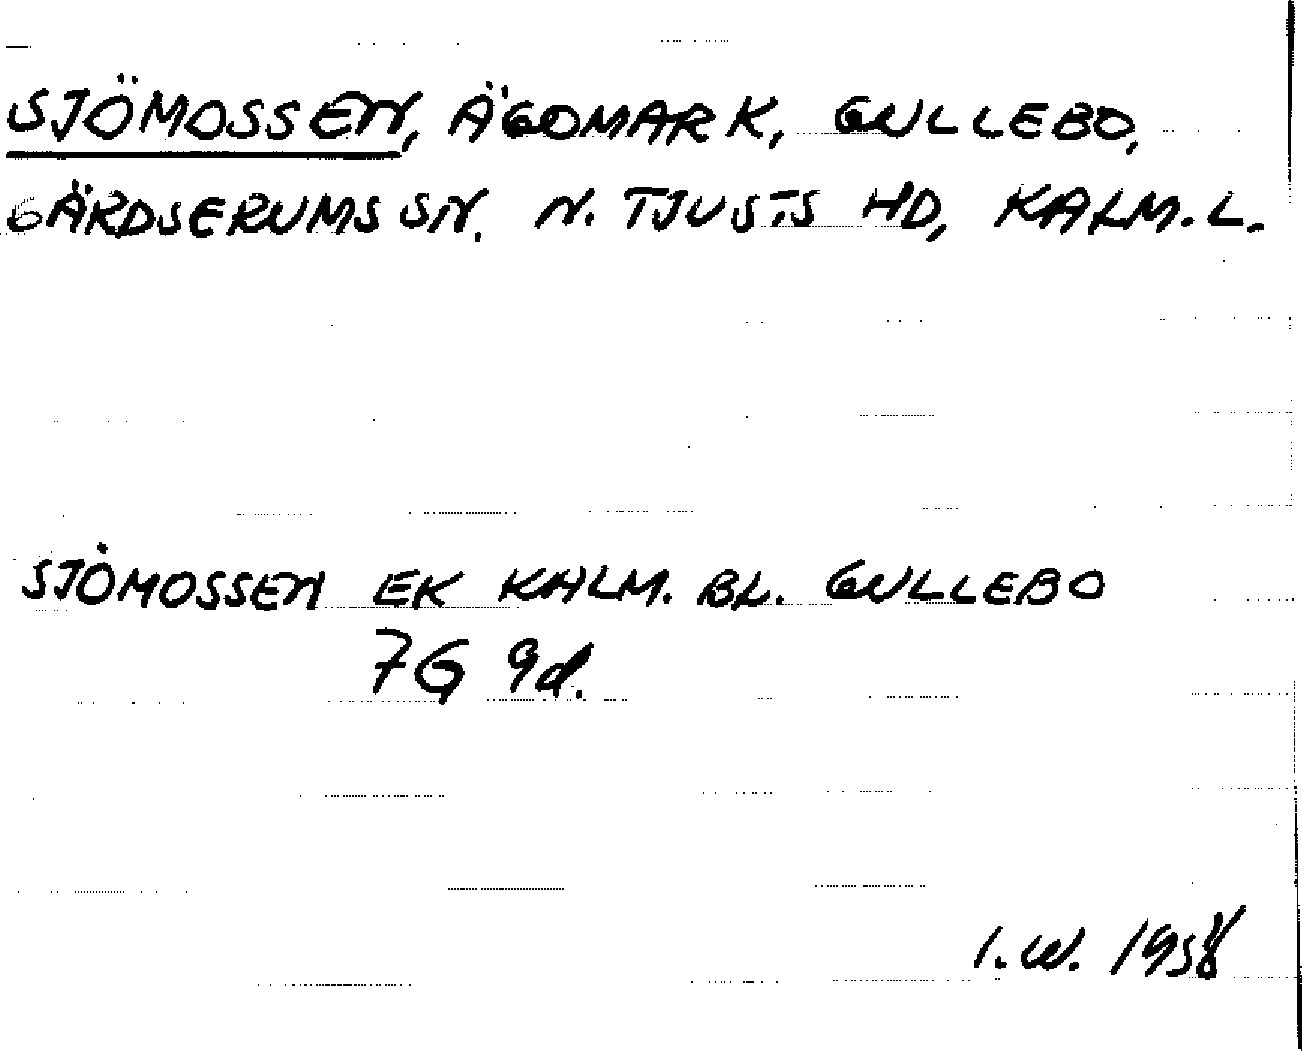 SJÖMOSSEN, ÄGOMARK, GULLEBO,
GÄRDSERUMS SN. N. TJUSTS HD, KALM. L.
SJÖMOSSEN EK KALM. BL. GULLEBO
7G 9d.
I. W. 1958